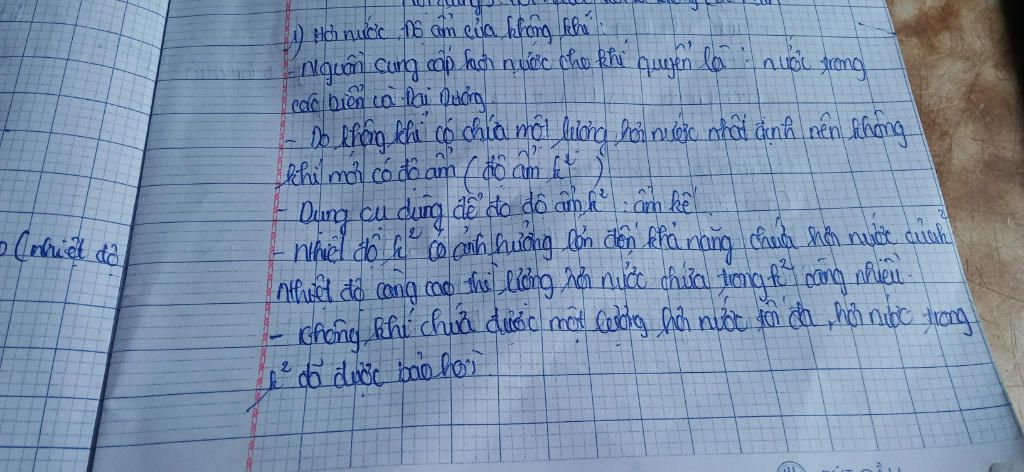 1) Hơi nước. Độ ẩm của không khí:
- Nguồn cung cấp hơi nước cho khí quyển là: nước trong
các biển và Đại Dương.
- Do không khí có chứa một lượng hơi nước nhất định nên không
khí mới có độ ẩm (độ ẩm k²)
- Dụng cụ dùng để đo độ ẩm k²: ẩm kế
- Nhiệt độ k² có ảnh hưởng lớn đến khả năng chứa hơi nước của k²
(nhiệt độ
Nhiệt độ càng cao thì lượng hơi nước chứa trong k² càng nhiều.
- Không khí chứa được một lượng hơi nước tối đa, hơi nước trong
k² đó được bảo hòa